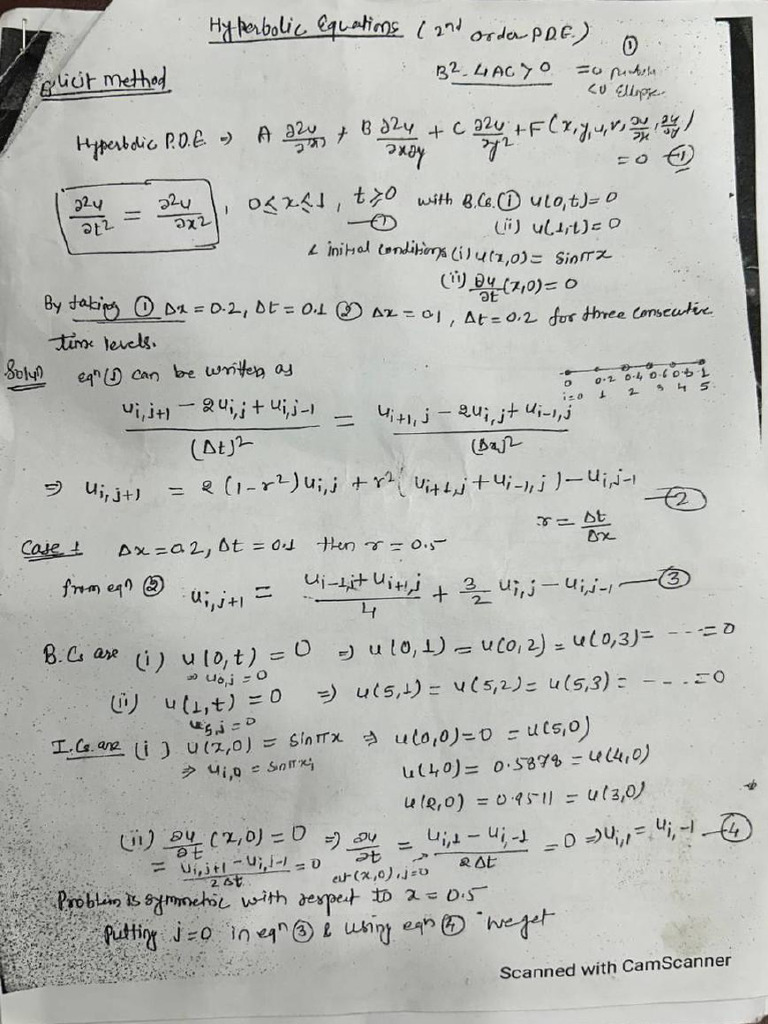 Hyperbolic Equations (2nd order P.D.E.)
①
B² - 4AC > 0 = 0
< 0 Ellipse
Explicit method
Hyperbolic P.D.E. ⇒ A ∂²u/∂x² + B ∂²u/∂x∂y + C ∂²u/∂y² + F(x, y, u, v, ∂u/∂x, ∂u/∂y) = 0 ①
∂²u/∂t² = ∂²u/∂x² , 0≤x≤1, t≥0 ① with B.Cs. (i) u(0,t) = 0
(ii) u(1,t) = 0
& initial conditions (i) u(x,0) = sinπx
(ii) ∂u/∂t (x,0) = 0
By taking ① Δx = 0.2, Δt = 0.1 ② Δx = 0.1, Δt = 0.2 for three consecutive
time levels.
Solun eqn ① can be written as
0 0.2 0.4 0.6 0.8 1
i=0 1 2 3 4 5
(u i,j+1 − 2u i,j + u i,j-1)/(Δt)² = (u i+1,j − 2u i,j + u i-1,j)/(Δx)²
⇒ u i,j+1 = 2(1-r²)u i,j + r²(u i+1,j + u i-1,j) − u i,j-1 ②
r = Δt/Δx
Case 1 Δx = 0.2, Δt = 0.1 then r = 0.5
from eqn ② u i,j+1 = (u i-1,j + u i+1,j)/4 + 3/2 u i,j − u i,j-1 ③
B.Cs are (i) u(0,t) = 0 ⇒ u(0,1) = u(0,2) = u(0,3) = --- = 0
⇒ u 0,j = 0
(ii) u(1,t) = 0 ⇒ u(5,1) = u(5,2) = u(5,3) = --- = 0
u 5,j = 0
I.Cs. are (i) u(x,0) = sinπx ⇒ u(0,0) = 0 = u(5,0)
⇒ u i,0 = sinπxi u(1,0) = 0.5878 = u(4,0)
u(2,0) = 0.9511 = u(3,0)
(ii) ∂u/∂t (x,0) = 0 ⇒ ∂u/∂t = (u i,1 − u i,-1)/2Δt = 0 ⇒ u i,1 = u i,-1 ④
= (u i,j+1 − u i,j-1)/2Δt = 0 at (x,0), j=0
Problem is symmetric with respect to x = 0.5
Putting j=0 in eqn ③ & using eqn ④ we get
Scanned with CamScanner